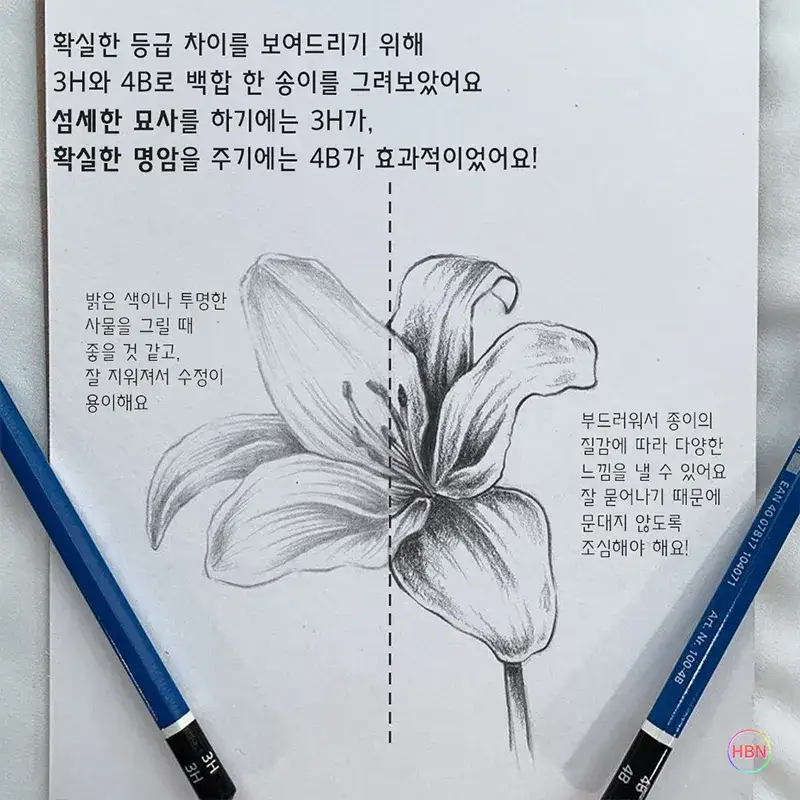 확실한 등급 차이를 보여드리기 위해
3H와 4B로 백합 한 송이를 그려보았어요
섬세한 묘사를 하기에는 3H가,
확실한 명암을 주기에는 4B가 효과적이었어요!
밝은 색이나 투명한
사물을 그릴 때
좋을 것 같고,
잘 지워져서 수정이
용이해요
부드러워서 종이의
질감에 따라 다양한
느낌을 낼 수 있어요
잘 묻어나기 때문에
문대지 않도록
조심해야 해요!
EAN 40 07817 104071
Art. Nr. 100-4B
3H
3H
4B
4B
HBN